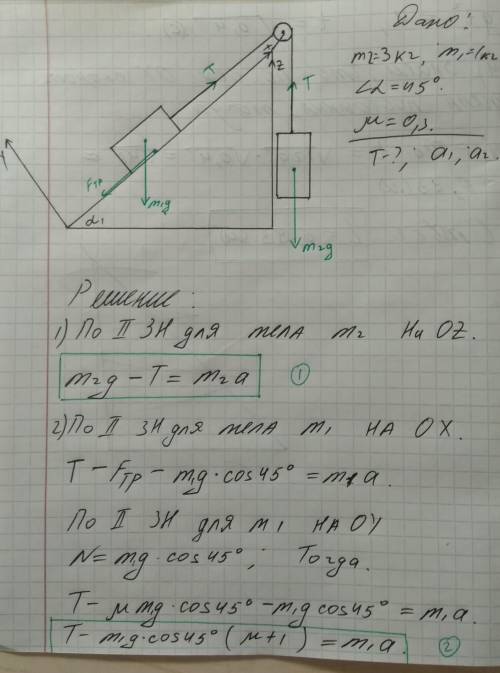 Дано:
m2=3кг, m1=1кг
∠α=45°.
μ=0,3.
T-?, a1, a2.
x
z
T
T
Y
Fтр
m1g
α1
m2g
Решение:
1) По II ЗН для тела m2 на OZ.
m2g - T = m2a ①
2) По II ЗН для тела m1 НА OX.
T - Fтр - m1g·cos45° = m1a.
По II ЗН для m1 НА OY
N = m1g·cos45°; Тогда.
T - μmg·cos45° - m1g cos45° = m1a.
T - m1g·cos45°(μ+1) = m1a. ②